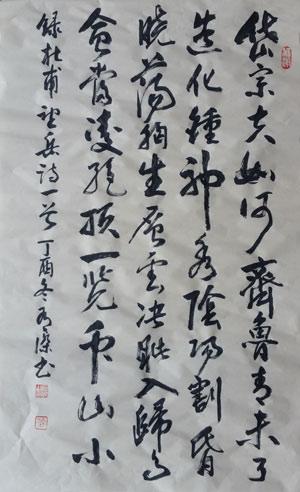 岱宗夫如何齊魯青未了
造化鍾神秀陰陽割昏
曉蕩胸生層雲決眥入歸鳥
會當凌絕頂一覽眾山小
錄杜甫望岳詩一首 丁酉冬 書